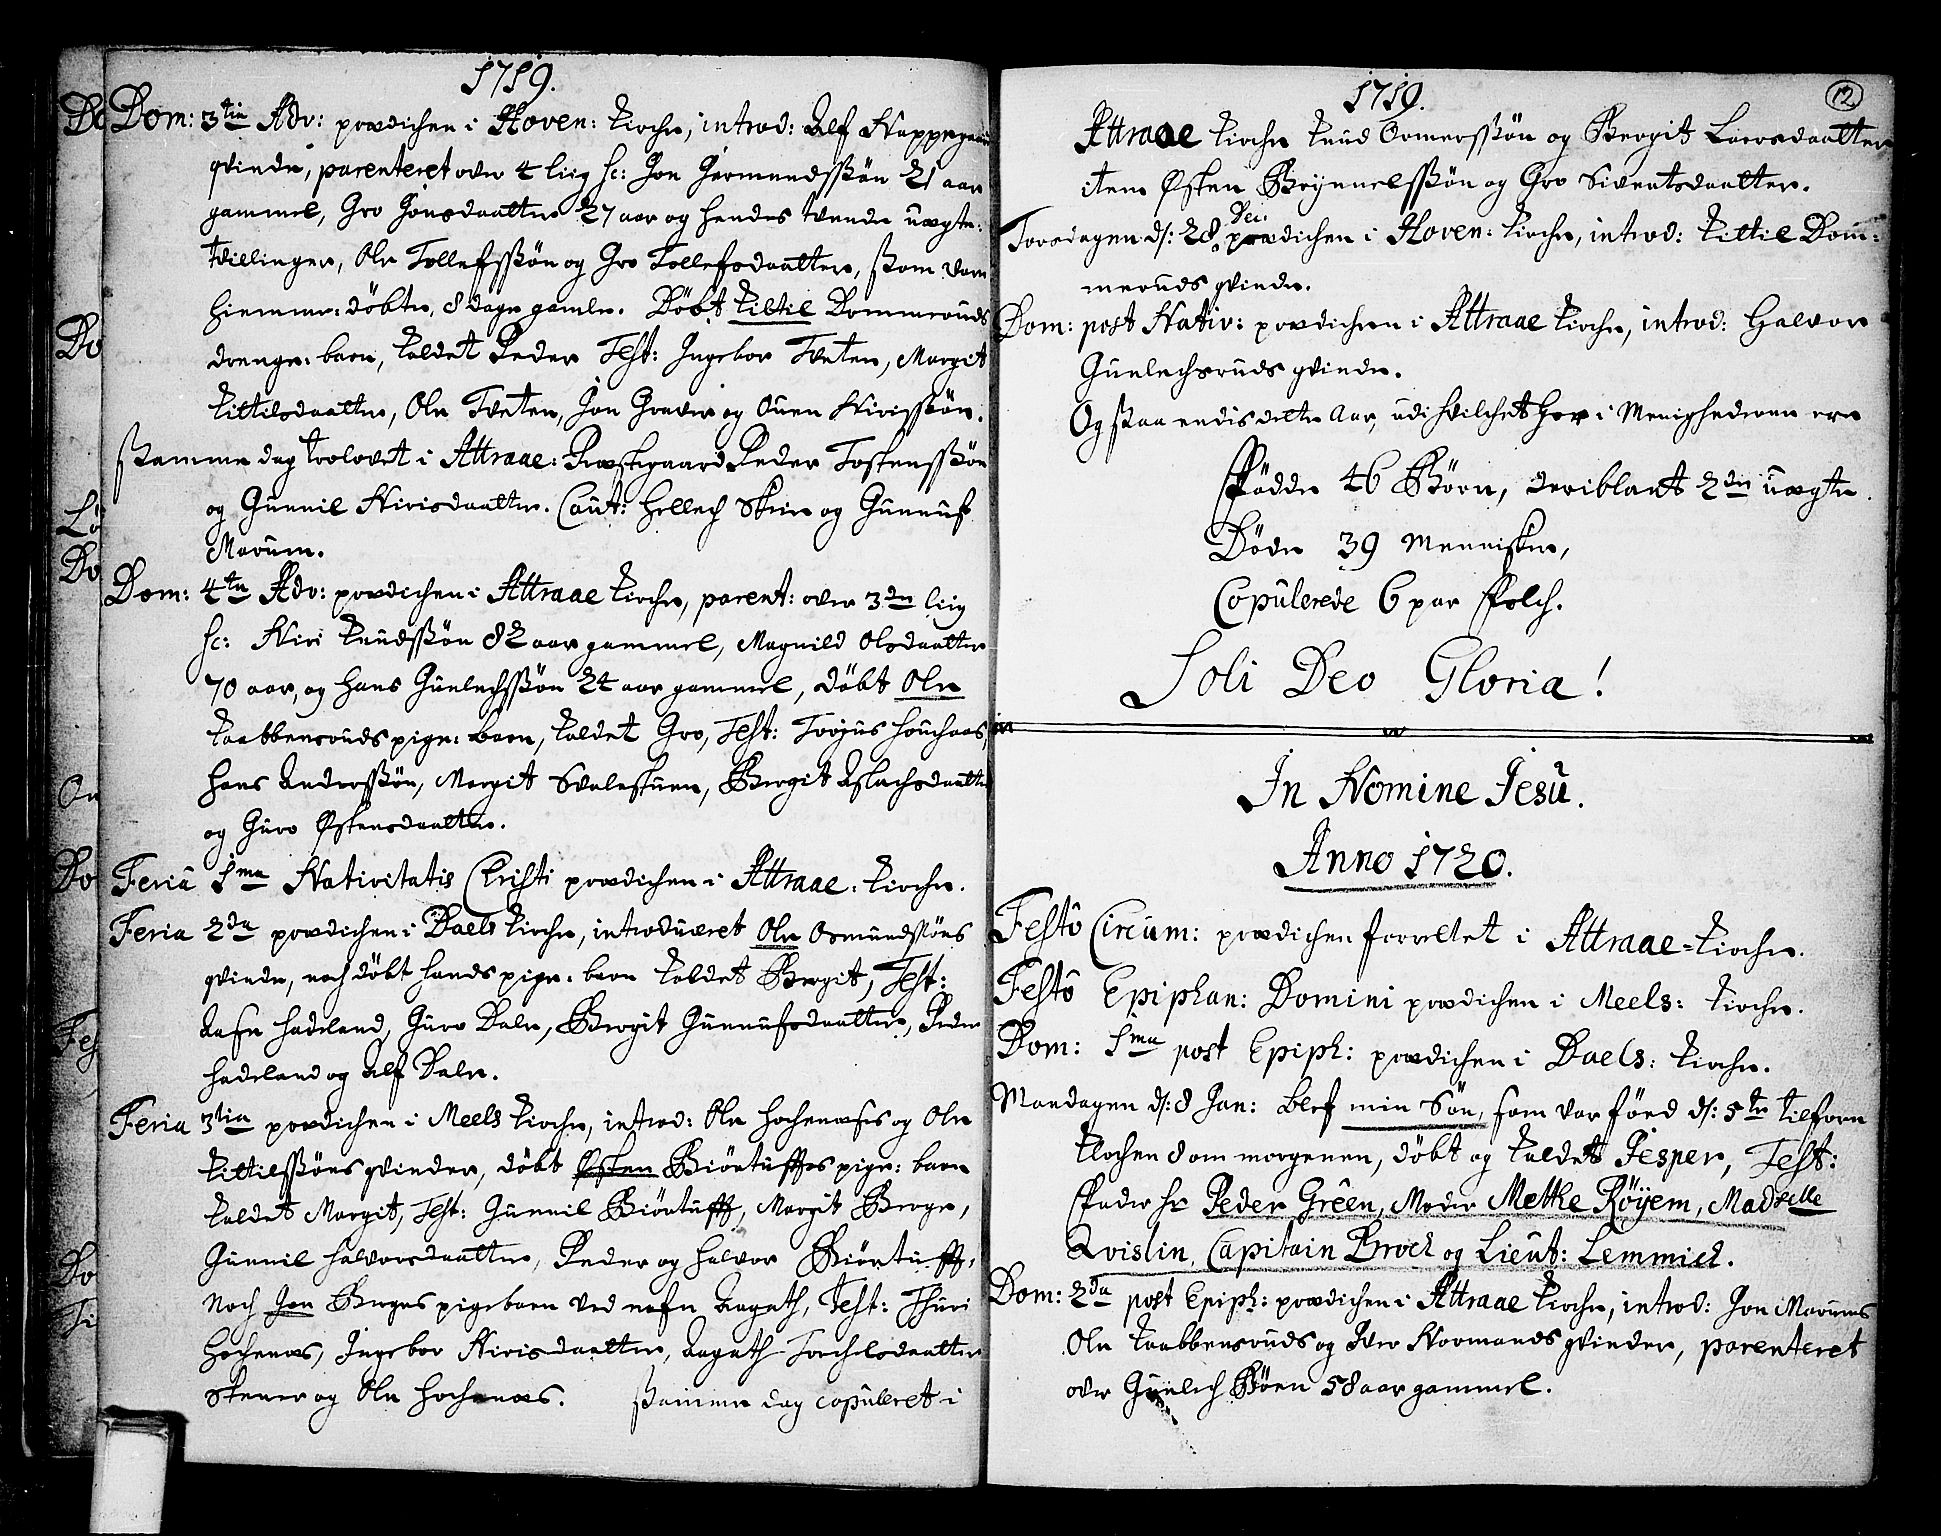 1719.
Dom: 3tia Adv: prædichen i Hoven: Kirche, introd: Alf
qvinde, parenteret over 4 liig sc: Jon Germundssøn 21 aar
gammel, Gro Jonsdaatter 27 aar og hendes tvende uægte:
tvillinger, Ole Tollefssøn og Gro Tollefsdaatter, ssom vare
hiemme: døbte, 8 dage gamle. Døbt Kittil Dommeruds
drenge: barn, kaldet Peder Test: Ingebor Tveten, Margit
Kittilsdaatter, Ole Tveten, Jon Graver og Ouen Nirissøn.
ssamme dag trolovet i Attraae: Præstegaard Peder Tostenssøn
og Gunnil Nirisdaatter. Caut: Hellech Skeie og Gunnuf
Marum.
Dom: 4ta Adv: prædichen i Attraae Kirche, parent: over 3de liig
sc: Niri Knudssøn 82 aar gammel, Magnild Olsdaatter
70 aar, og Hans Gunlechssøn 24 aar gammel, døbt Ole
Kaabbensruds pige: barn, kaldet Gro, Test: Torjus
Hans Anderssøn, Margit Svalestuen, Bergit Aslachsdaatter
og Guro Østensdaatter.
Feria 1ma Nativitatis Christi prædichen i Attraae: Kirche.
Feria 2da prædichen i Daels Kirche, introduceret Ole Osmundssøns
qvinde, noch døbt hands pige: barn kaldet Bergit, Test:
Aase Hadeland, Guro Dale, Bergit Gunnufsdaatter, Peder
Hadeland og Alf Dale.
Feria 3tia prædichen i Meels Kirche, introd: Ole Hochenæses og Ole
Kittilssøns qvinder, døbt Østen Biørtuffts pige: barn
kaldet Margit, Test: Gunnil Biørtufft, Margit Berge,
Gunnil Halvorsdaatter, Peder og Halvor Biørtufft,
Noch Jon Berges pigebarn ved nafn Aagath, Test: Thuri
Hochenæs, Ingebor Nirisdaatter, Aagath Torchelsdaatter
og Ole Hochenæs. ssamme dag copuleret i
12
1719.
Attraae Kirche Knud Ormerssøn og Bergit Larsdaatter
item Østen Brynnelssøn og Gro Siventsdaatter.
Dec:
Torsdagen d: 28. prædichen i Hoven: Kirche, introd: Kittil Dom:
meruds qvinde.
Dom: post Nativ: prædichen i Attraae Kirche, introd: Halvor
Gunlechsruds qvinde.
Og ssaa endis dette Aar, udi hvilchet her i Menigheden ere
Fødde 46 Børn, deriblant 2de uægte.
Døde 39 Mennisker,
Copulerede 6 par Folch.
Soli Deo Gloria!
In Nomine Jesu.
Anno 1720.
Festo Circum: prædichen forrettet i Attraae=Kirche.
Festo Epiphan: Domini prædichen i Meels: Kirche.
Dom: 1ma post Epiph: prædichen i Daels: Kirche.
Mandagen d: 8 Jan: blef min Søn, som var føed d: 5te tilforn
Klochen 8 om morgenen, døbt og kaldet Jesper, Test:
Fader Hr Peder Green, Moder Metke Røyem, Madselle
Qvislin, Capitain Broch og Lieut: Lemmich.
Dom: 2da post Epiph: prædichen i Attraae Kirche, introd: Jon Marums
Ole Kaabbensruds og Iver Normands qvinder, parenteret
over Gunlech Bøen 58 aar gammel.